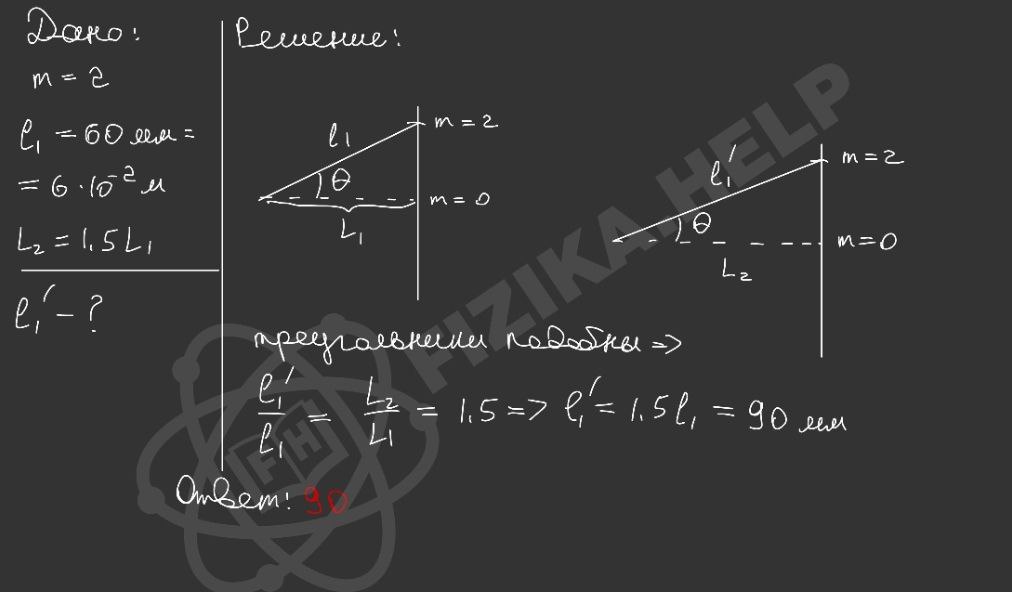 Дано:
m = 2
l₁ = 60 мм =
= 6 · 10⁻² м
L₂ = 1.5 L₁
l₁′ - ?
Решение:
l₁
m = 2
θ
m = 0
L₁
l₁′
m = 2
θ
m = 0
L₂
треугольники подобны =>
l₁′/l₁ = L₂/L₁ = 1.5 => l₁′ = 1.5 l₁ = 90 мм
Ответ: 90
FIZIKA.HELP
FH